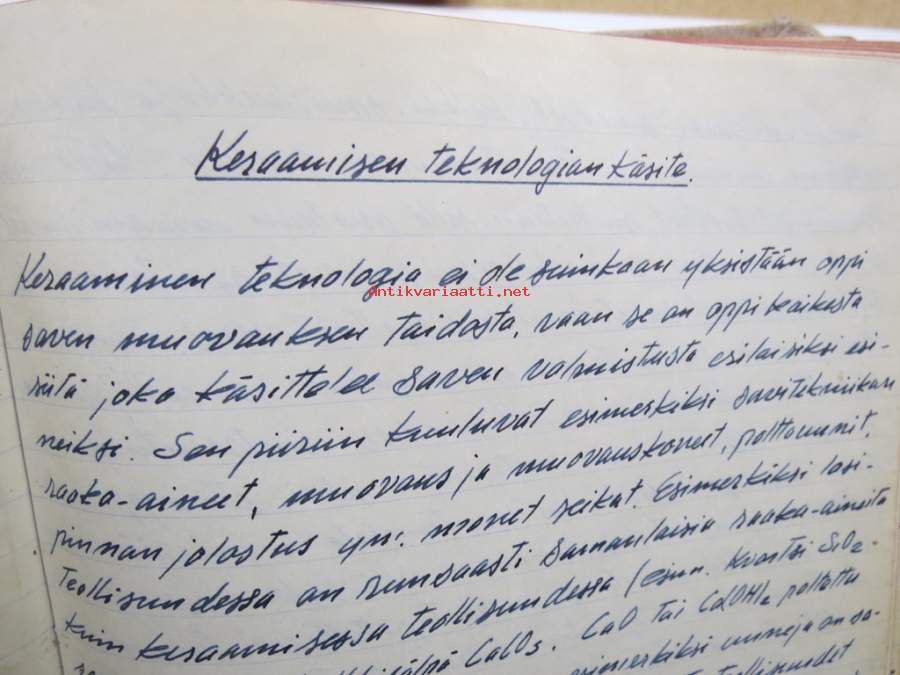 Keraamisen teknologian käsite.
Keraaminen teknologia ei ole suinkaan yksistään oppi
Antikvariaatti.net
saven muovauksen taidosta, vaan se on oppi kaikesta
siitä joka käsittelee saven valmistusta erilaisiksi esi-
neiksi. Sen piiriin kuuluvat esimerkiksi savitekniikan
raaka-aineet, muovaus ja muovauskoneet, polttouunit,
pinnan jalostus ym. monet seikat. Esimerkiksi lasi-
teollisuudessa on runsaasti samanlaisia raaka-aineita
kuin keraamisessa teollisuudessa (esim. kvartsi SiO2.
CaCO3. CaO tai Ca(OH)2 poltettu
esimerkiksi uuneja on sa-
teollisuudet